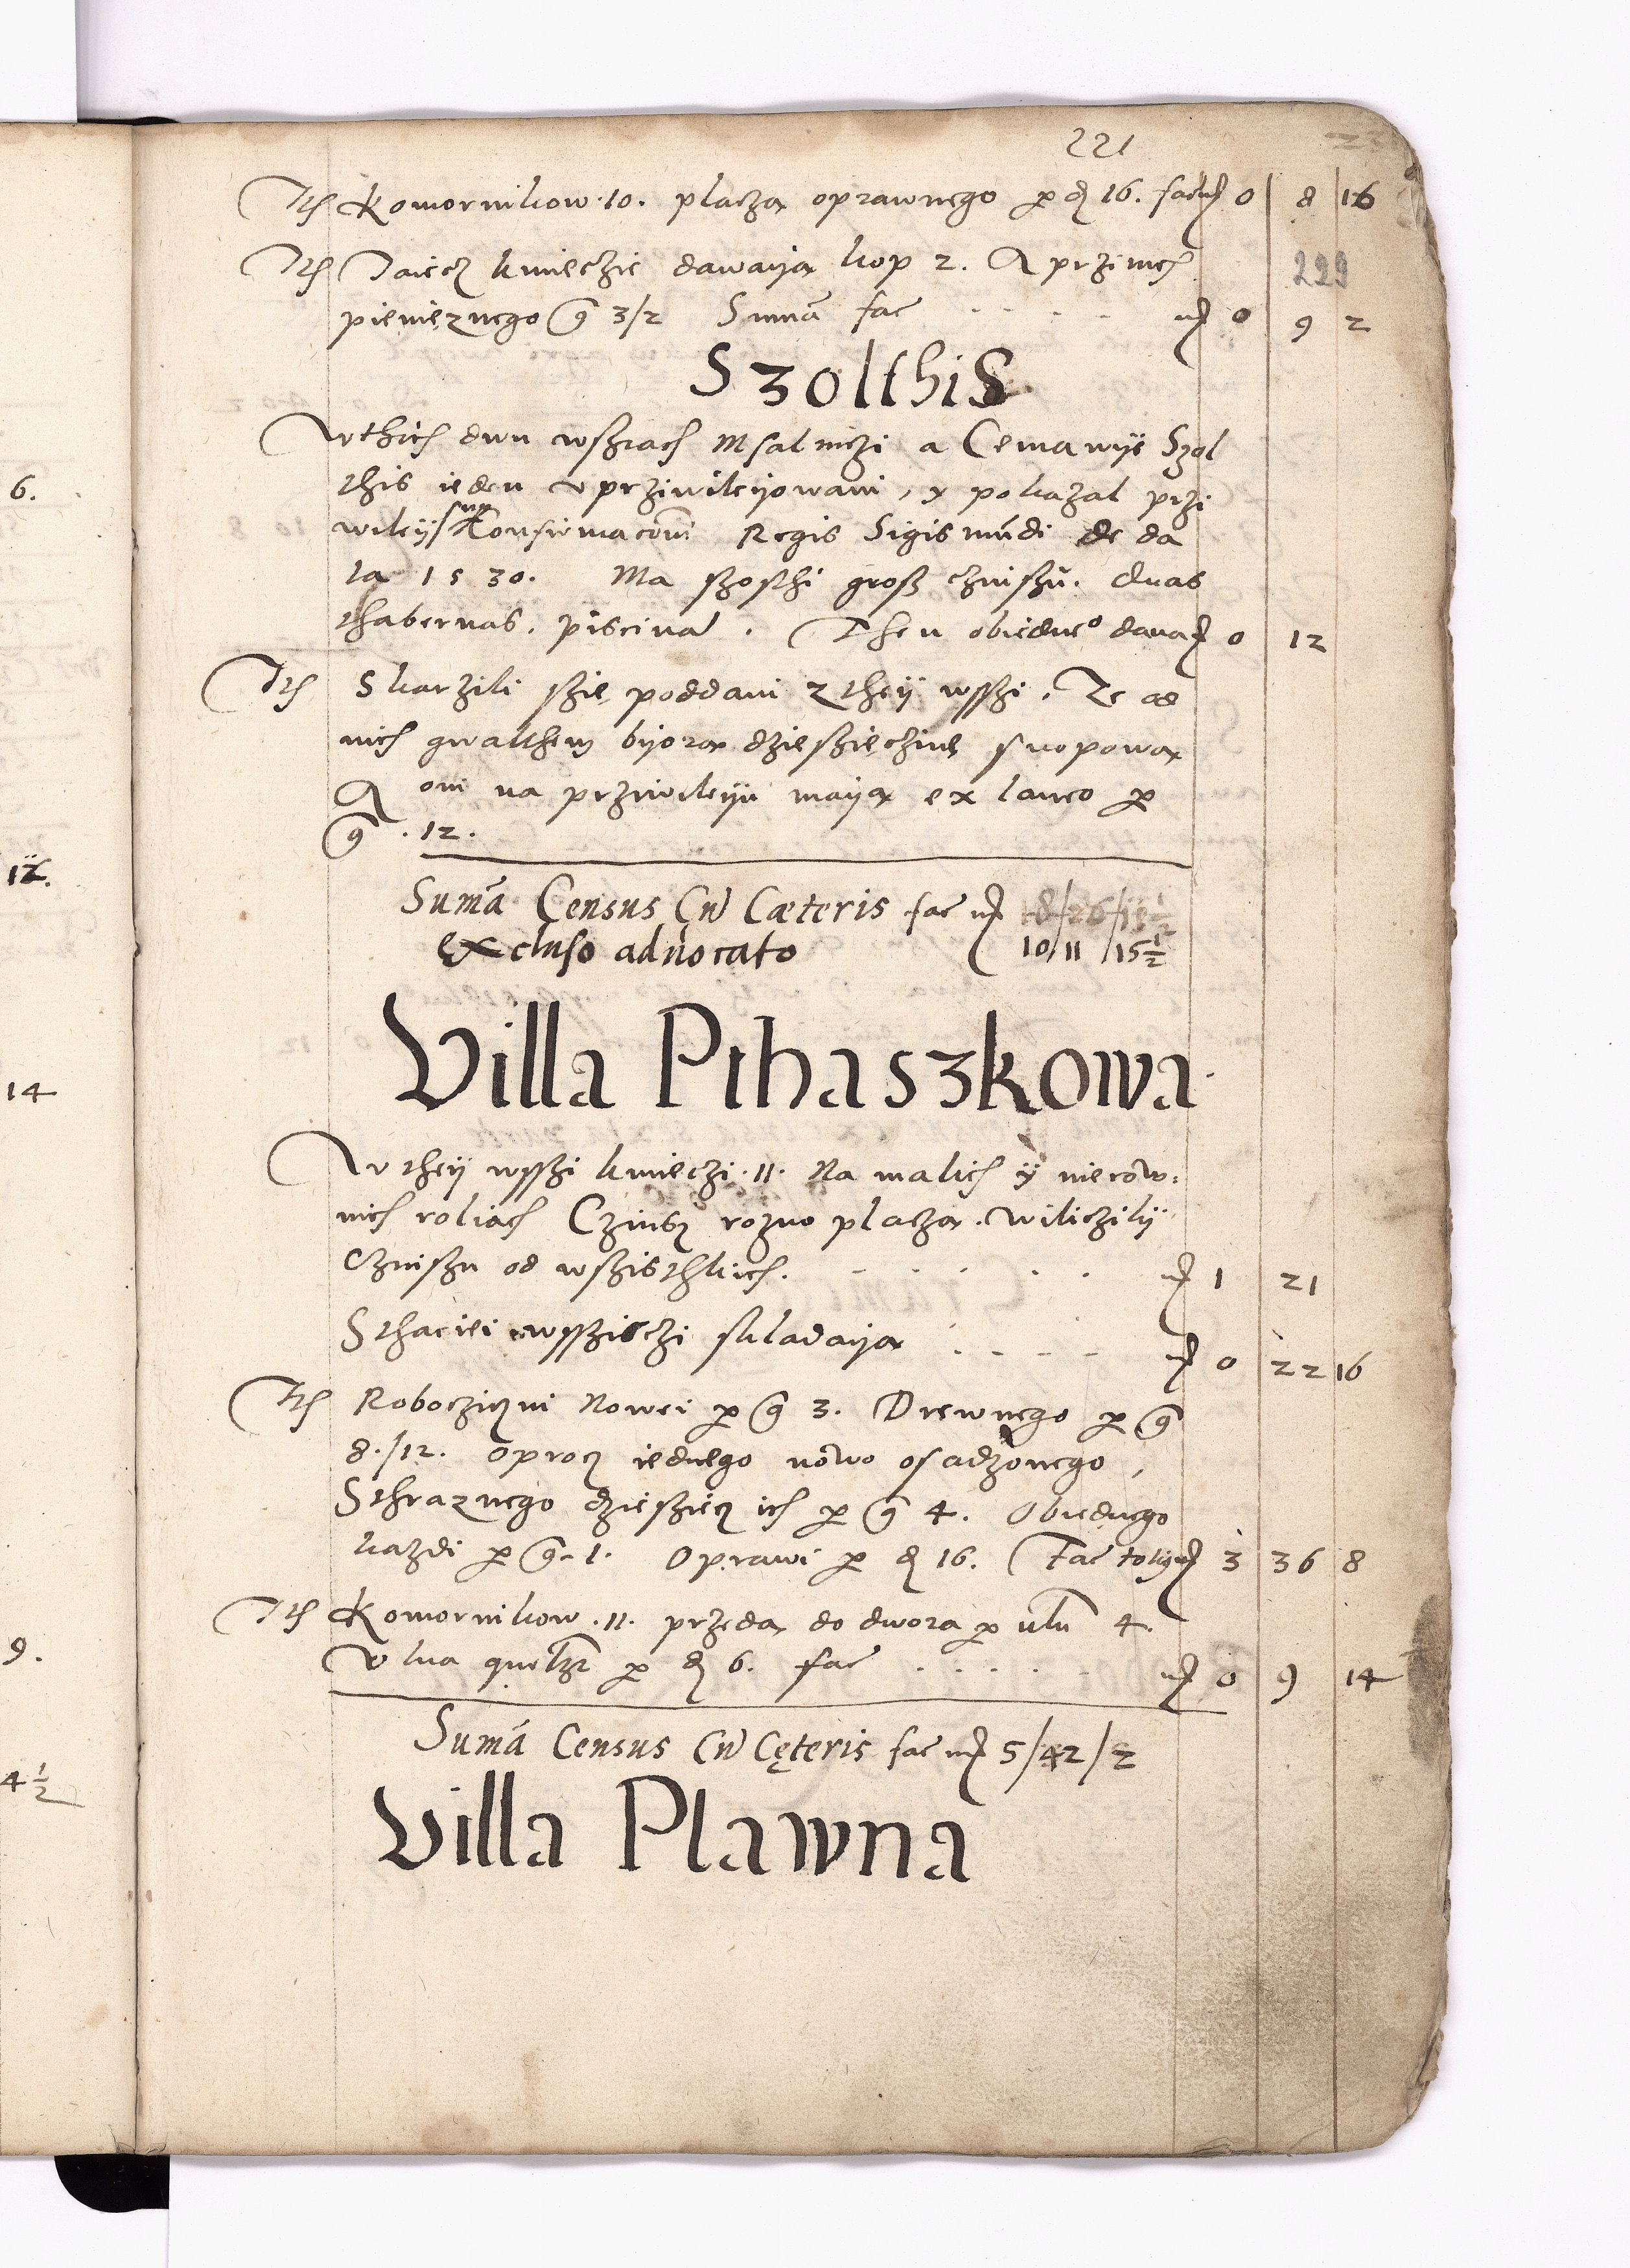 221
Ith Komornikow. 10. placza oprawnego per d 16. fac m 0 8 16
229
Ith Jaiecz kmieczie dawaya kop 2. A przi nich
pienieznego g 3/2 Suma fac . . . . . m 0 9 2
Szolthis
W thich dwu wsziach Msalniczi a Cemawye Szol
this ieden uprziwileyowani, y pokazal przi
wiley sup Konfirmacioni Regis Sigismundi de da
ta 1530. Ma szosthi grosz czinszu. duas
thabernas. piscina. Then obiedne° dawa m 0 12
Ith Skarzili szie poddani z they wsszi. Ze od
nich gwalthem biyora dzieszieczine snopowa
A oni na przivileyu maya ex laneo per
g. 12.
Suma Census Cu Cæteris fac m
excluso advocato 10/11/15½
Villa Pthaszkowa
W they wsszi kmieczi. 11. Na malich y nierow:
nich roliach Czinsz rozno placza. Wiliczily
Czinszu od wszisthkich. . . . . . m 1 21
Sthaciei wsszisczi skladaya . . . . m 0 22 16
Ith Robocziszni Nowei per g 3. Drewnego per g
8./12. oprocz iednego nowo osadzonego,
Sthraznego dzieszięcz ich per g 4. Obiednego
kazdi per g. 1. Oprawi per d 16. Fac m 3 36 8
Ith Komornikow. 11. przeda do dwora per ulu 4.
Ulna quelzt per d 6. fac . . . . . m 0 9 14
Suma Census Cu Cęteris fac m 5/42/2
Villa Plawna
6.
14
9.
4½